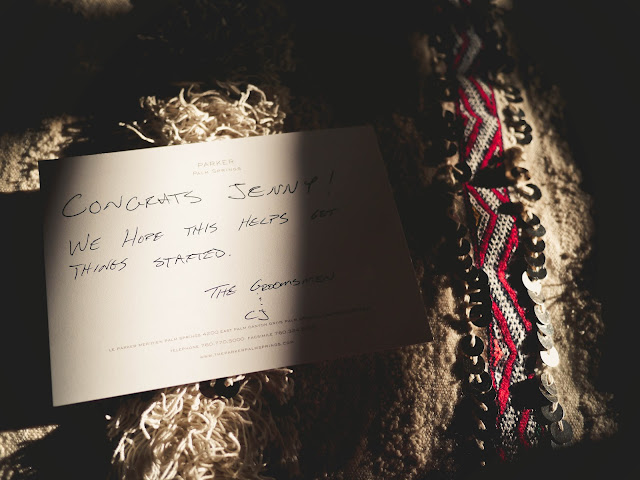 PARKER
PALM SPRINGS
CONGRATS JENNY!
WE HOPE THIS HELPS GET
THINGS STARTED.
THE GROOMSMEN
:
CJ
LE PARKER MERIDIEN PALM SPRINGS 4200 EAST PALM CANYON DRIVE PALM SPRINGS
TELEPHONE 760.770.5000 FACSIMILE 760.
WWW.THEPARKERPALMSPRINGS.COM